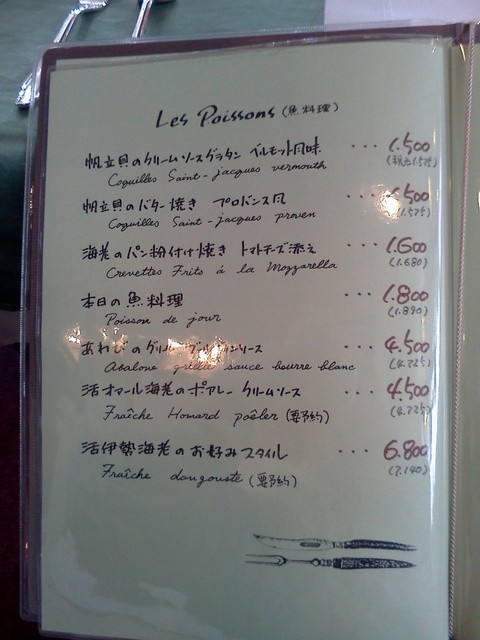 Les Poissons (魚料理)
帆立貝のクリームソースグラタン ベルモット風味 ... 1.500
Coquilles Saint-jacques vermouth (税込1.575)
帆立貝のバター焼き プロバンス風 ... 1.500
Coquilles Saint-jacques proven (1.575)
海老のパン粉付け焼き トマトチーズ添え ... 1.600
Crevettes Frits á la Mozzarella (1.680)
本日の魚料理 ... 1.800
Poisson de jour (1.890)
あわびのグリル ブールブランソース ... 4.500
Abalone grillé sauce beurre blanc (4.725)
活オマール海老のポアレー クリームソース ... 4.500
Fraîche Homard poêler (要予約) (4.725)
活伊勢海老のお好みスタイル ... 6.800
Fraîche dangouste (要予約) (7.140)